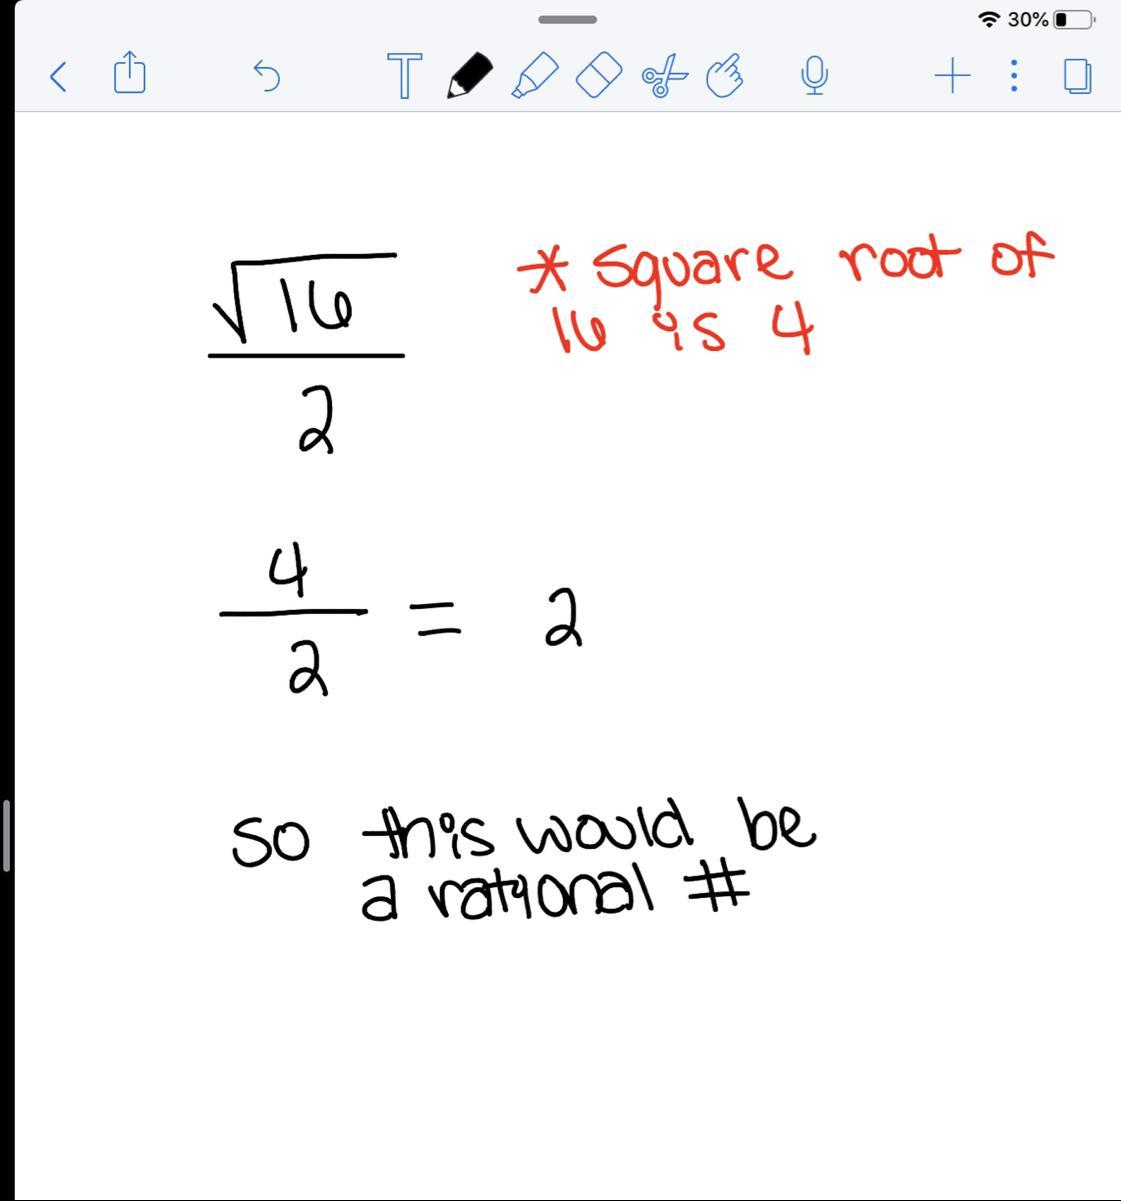 30%
T
√16 * square root of
16 is 4
2
4
= 2
2
so this would be
a rational #